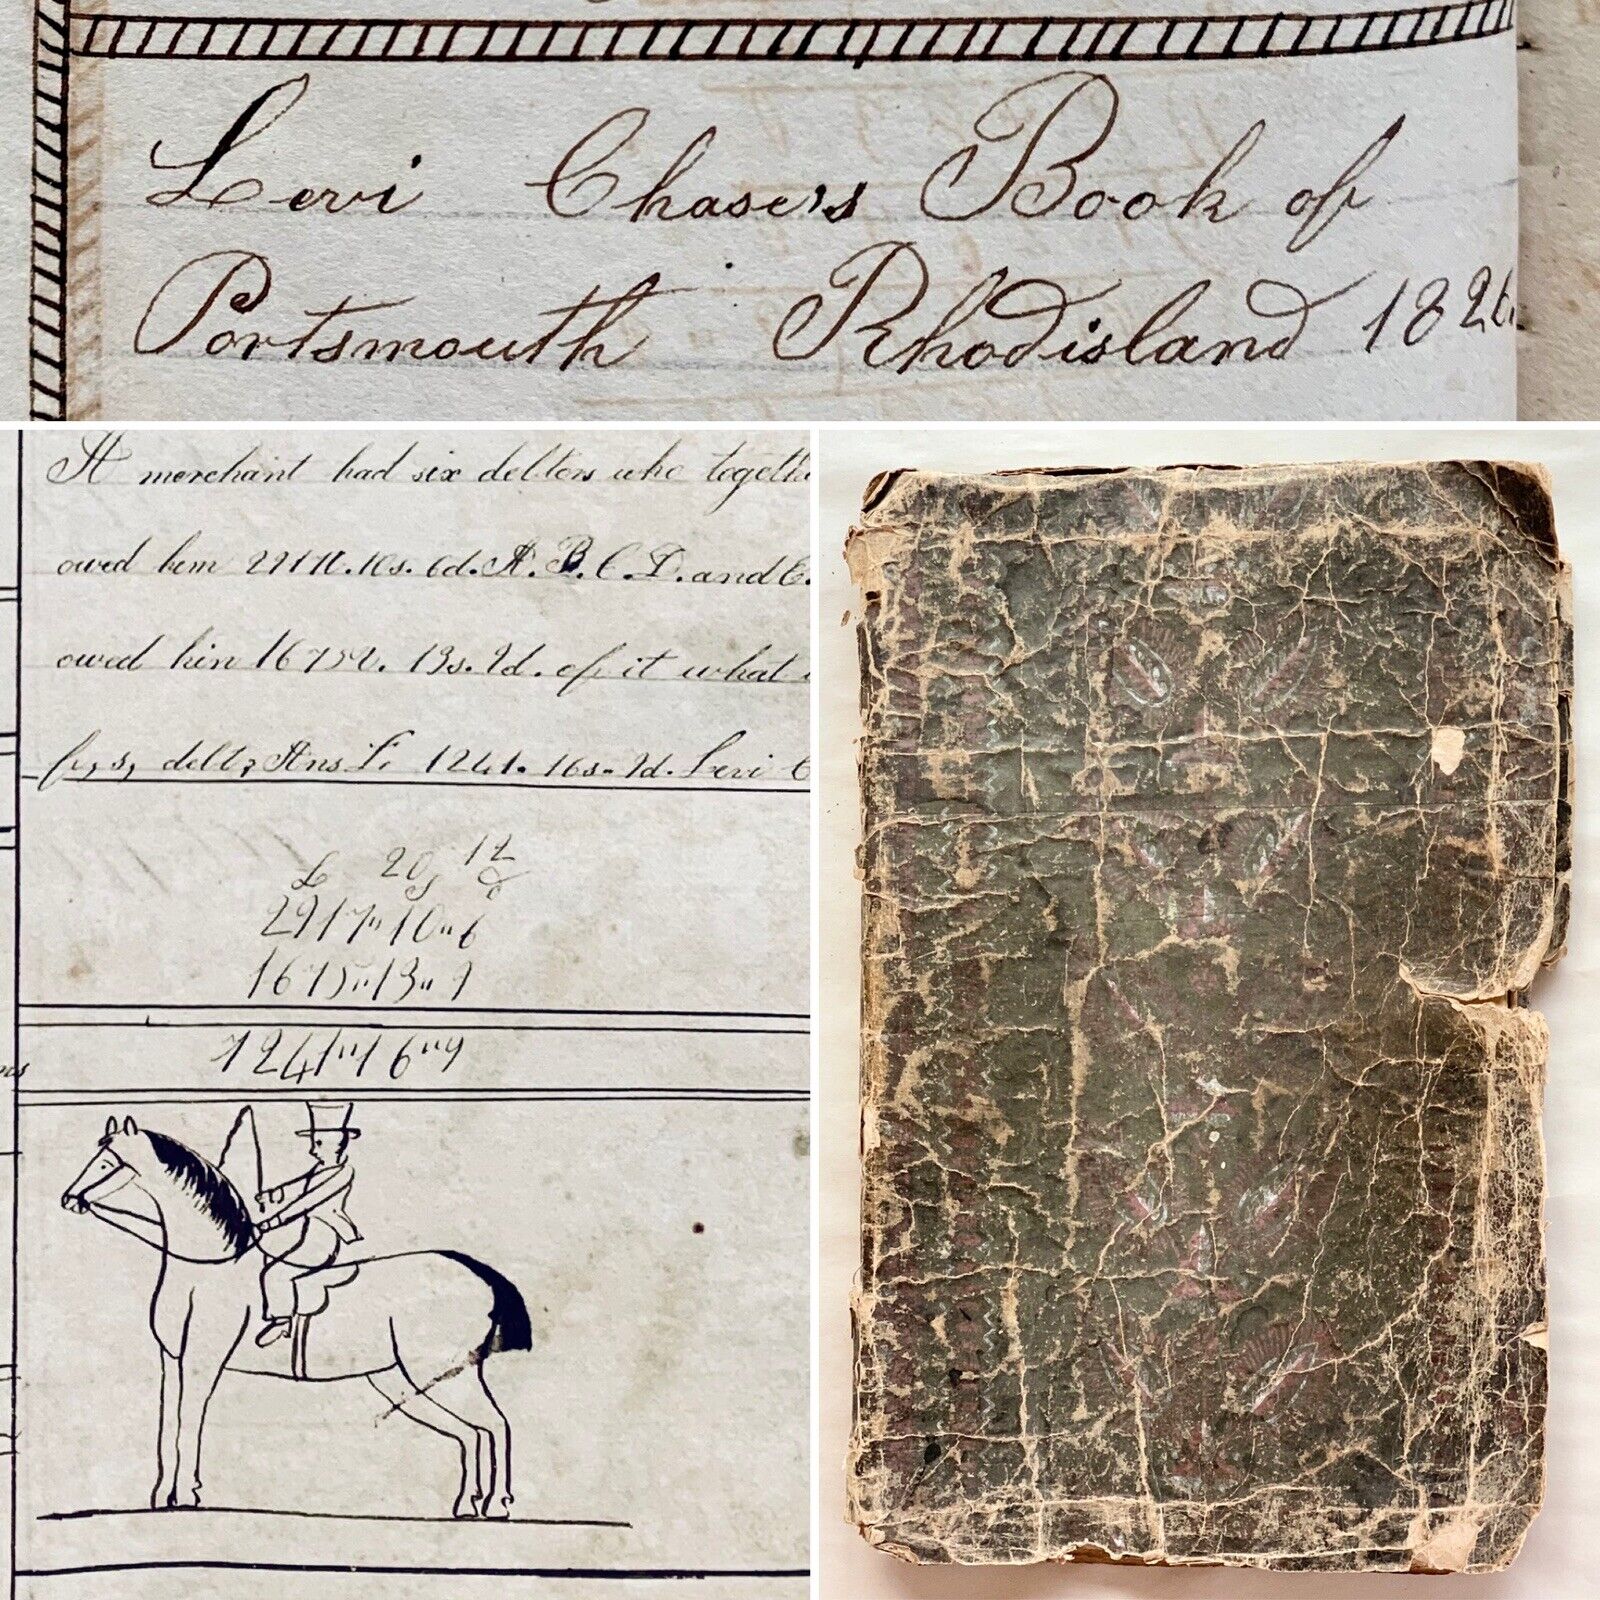 Levi Chase's Book of
Portsmouth Rhodisland 1826.
A merchant had six debtors who togethe
owed him 2917£.10s.6d. A. B. C. D. and E.
owed him 1675£. 13s. 9d. of it what
f,s, debt, Ans L. 1241. 16s. 9d. Levi C
£ 20s 12d
2917"10"6
1675"13"9
1241"16"9
ns